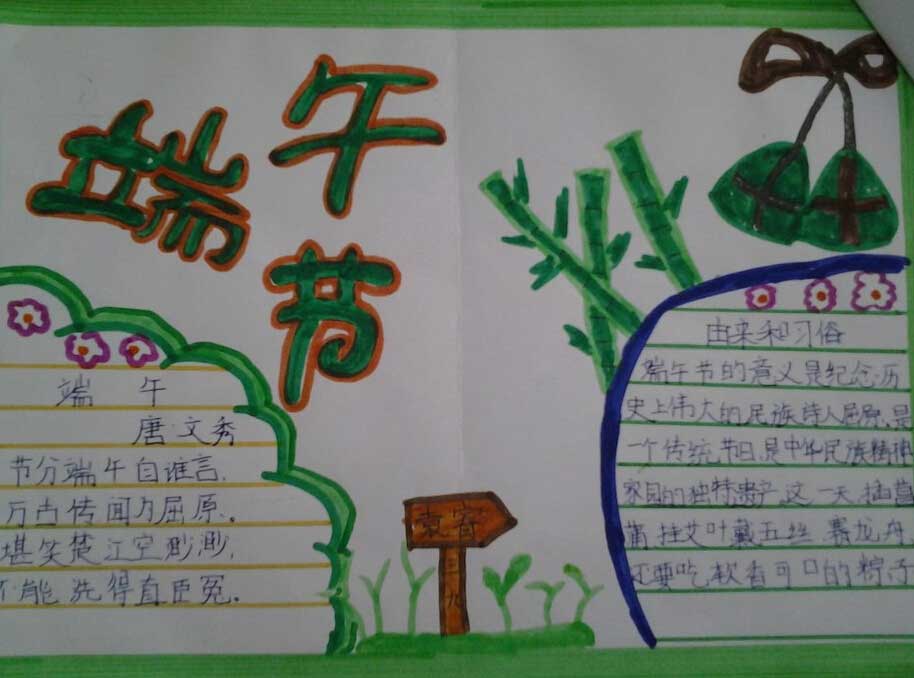 端午节
端 午
唐·文秀
节分端午自谁言,
万古传闻为屈原。
堪笑楚江空渺渺,
不能洗得直臣冤。
三九
由来和习俗
端午节的意义是纪念历
史上伟大的民族诗人屈原,是
一个传统节日,是中华民族精神
家园的独特遗产,这一天,插菖
蒲,挂艾叶,戴五丝,赛龙舟,
还要吃软香可口的粽子